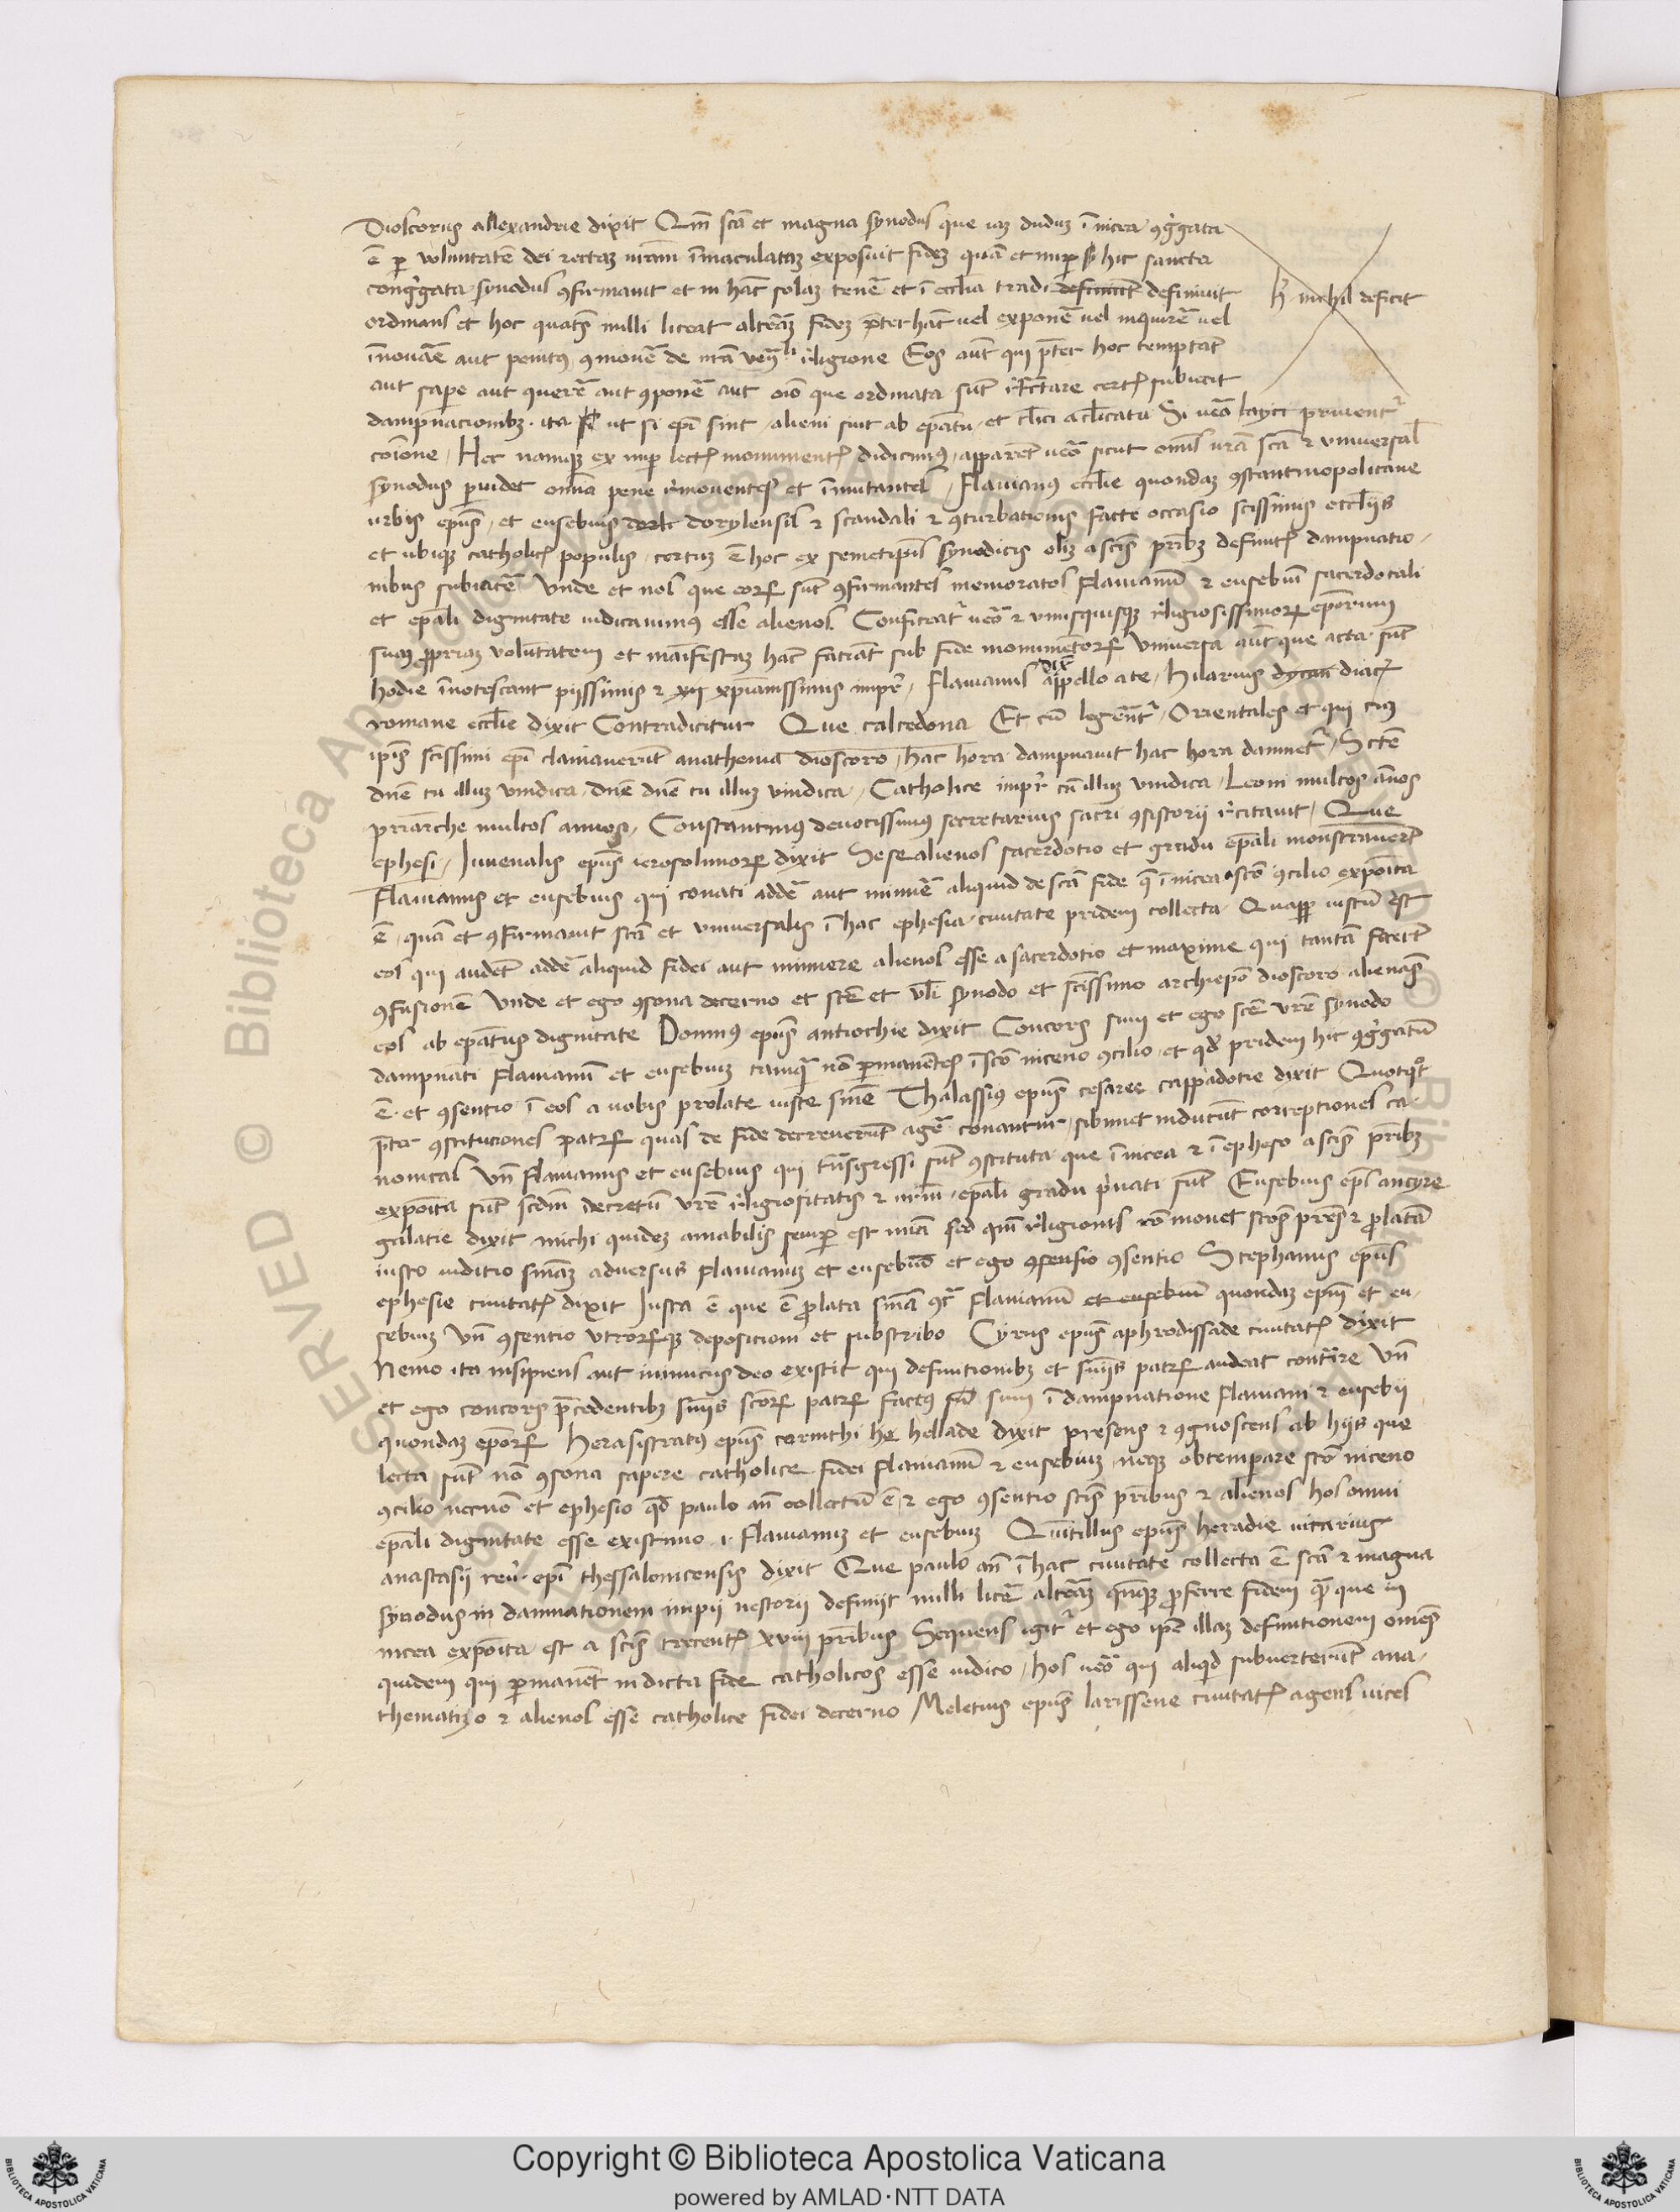 Dioscorus allexandrie dixit Qm̄ scā et magna synodus que iaʒ duduʒ ī nicea ꝯg̾gata
ē ꝑ voluntatē dei rectaʒ nr̄am īmaculataʒ exposuit fideʒ quā et nuꝑ hic sancta
cong̾gata synodus ꝯfirmauit et in hāc solaʒ tenē̄ et ī ecclīa tradi definiuit definiuit
h̾ nichil deficit
ordinans et hoc quatꝰ nulli liceat alterāʒ fideʒ p̄ter hāc uel exponē̄ uel inquirē̄ uel
īnouāe aut penitus ꝯmouē̄ de nr̄a religione Eos aūt qui p̄ter hoc temptāt
aut sape̾ aut querē̄ aut ꝯponē̄ aut oīo que ordinata sūt retractare certꝭ subiecit
dampnacionibʒ. ita ut si ep̄i sint, alieni sint ab ep̄atu, et cl̄ici a cl̄icatu Si ūo layci priuent̾
cōione. Hec namqʒ ex nuꝑ lectꝭ monumentꝭ didicimus, apparet ūo sicut oms ur̄a scā ⁊ vniuersal̄
synodus ꝑuidet omīa pene remouentes et īmutantes, Flauianus ecclīe quondaʒ ꝯstantinopolitane
urbis ep̄us, et eusebius doryleusis ⁊ scandali ⁊ ꝯturbationis facte occasio scissimis ecclīis
et ubiqʒ catholicꝭ populis, certuʒ ē hoc ex semetipīs synodicis oliʒ a scīs pr̄ibʒ definitꝭ dampnatio-
nibus subiacē̄ Unde et nos que eorꝝ sūt ꝯfirmantes memoratos Flauianū ⁊ eusebiū sacerdotali
et ep̄ali dignitate iudicauimus esse alienos. Confiteat̾ ūo ⁊ unusquisqʒ religiosissimorꝝ ep̄orum
suaʒ ꝓpriaʒ voluntatem et manifestaʒ hāc faciāt sub fide monumentorꝝ Vniuersa aūt que acta sūt
hodie īnotescant pijssimis ⁊ xp̄ianissimis imp̄r, Flauianus dix̄ appello a te, Hilarius dycan diacꝰ
romane ecclīe dixit Contradicitur Que calcedona Et cū legerēt̾, Orientales et qui cuʒ
ipīs scissimi ep̄i clamauerūt anathema dioscoro, hac hora dampnauit hac hora damnet̾, Scē
dn̄e tu illuʒ vindica, dn̄e dn̄e tu illuʒ vindica, Catholice imp̄r tu illuʒ vindica, Leoni multos ānos
pr̄iarche multos annos, Constantinus deuotissimus secretarius sacri ꝯsistorii recitauit, Que
ephesi, Iuuenalis ep̄us ierosolimorꝝ dixit Sese alienos sacerdotio et gradu ep̄ali monstrauerūt
Flauianus et eusebius qui conati addē̄ aut minuē̄ aliquid de scā fide q̄ ī nicea scō ꝯcilio expoīta
ē, quā et ꝯfirmauit scā et vniuersalis ī hac ephesia ciuitate pridem collecta. Quaꝓꝑ iustū est
eos qui audēt addē̄ aliquid fidei aut minuere alienos esse a sacerdotio et maxime qui tantā fecert̄
ꝯfusionē Unde et ego ꝯsona decerno et scē et v̄li synodo et scissimo archiep̄o dioscoro alienās
eos ab ep̄atus dignitate Domnus ep̄us antiochie dixit Concors sum et ego scē ur̄e synodo
dampnati Flauianū et eusebiuʒ tamquā nō ꝑmanentes ī scō niceno ꝯcilio, et qd̾ pridem hic ꝯg̾gatū
ē. et ꝯsentio ī eos a uobis prolate iuste sn̄ie Thalassius ep̄us cesaree cappadocie dixit Quotqͦt
p̄ter ꝯstituciones patrꝝ quas de fide decreuerūt age̾ conantur, sibimet inducūt correptiones ca-
nonicas Un̄ Flauianus et eusebius qui tn̄sgressi sūt ꝯstituta que ī nicea ⁊ ī epheso a scīs pr̄ibʒ
expoīta sūt scdm̄ decretū ur̄e religiositatis ⁊ nr̄m, ep̄ali gradu p̾uati sūt Eusebius ep̄s ancyre
galatie dixit michi quideʒ amabilis semꝑ est mīa sed qm̄ religionis rō monet scōs pr̄es ⁊ ꝓlatā
iusto iuditio sn̄iaʒ aduersus Flauianuʒ et eusebiuʒ et ego ꝯfensio ꝯsentio Stephanus ep̄us
ephesie ciuitatꝭ dixit Iusta ē que ē ꝓlata sn̄ia ꝯt̾ Flauianū et eusebium quondaʒ ep̄m et eu-
sebiuʒ Un̄ ꝯsentio vtrorꝝqʒ depositioni et subscribo Cyrus ep̄us aphrodissade ciuitatꝭ dixit
Nemo ita insipiens aut inimicus deo existit qui definitionibʒ et sn̄iis patrꝝ audeat contraire Un̄
et ego concors p̄cedentibʒ sn̄iis scōrꝝ patrꝝ factus sum ī dampnatione Flauiani ⁊ eusebii
quondaʒ ep̄orꝝ Herasistratus ep̄us corinthi he hellade dixit presens ⁊ ꝯgnoscens ab hijs que
lecta sūt nō ꝯsona sapere catholice fidei Flauianū ⁊ eusebiuʒ, neqʒ obtemperare scō niceno
ꝯcilio necnō et ephesio qd̾ paulo an̄ collectū ē, ⁊ ego ꝯsentio scīs pr̄ibus ⁊ alienos hos omni
ep̄ali dignitate esse existimo .i. Flauianuʒ et eusebiuʒ Quintillus ep̄us heraclie uicarius
anastasii reū. ep̄i thessalonicensis dixit Que paulo an̄ ī hac ciuitate collecta ē scā ⁊ magna
synodus in damnationem impii nestorii definijt nulli licē̄ alterāʒ quāqʒ ꝓferre fidem p̄ que in
nicea expoīta est a scīs trecentꝭ xviii pr̄ibus Sequens igit̾ et ego ip̄e illaʒ definitionem omēs
quidem qui ꝑmanēt in dicta fide catholicos esse iudico, hos ūo qui aliqid subuerterūt ana-
thematizo ⁊ alienos esse catholice fidei decerno Meletius ep̄us larissene ciuitatꝭ agens uices
Copyright © Biblioteca Apostolica Vaticana
powered by AMLAD·NTT DATA